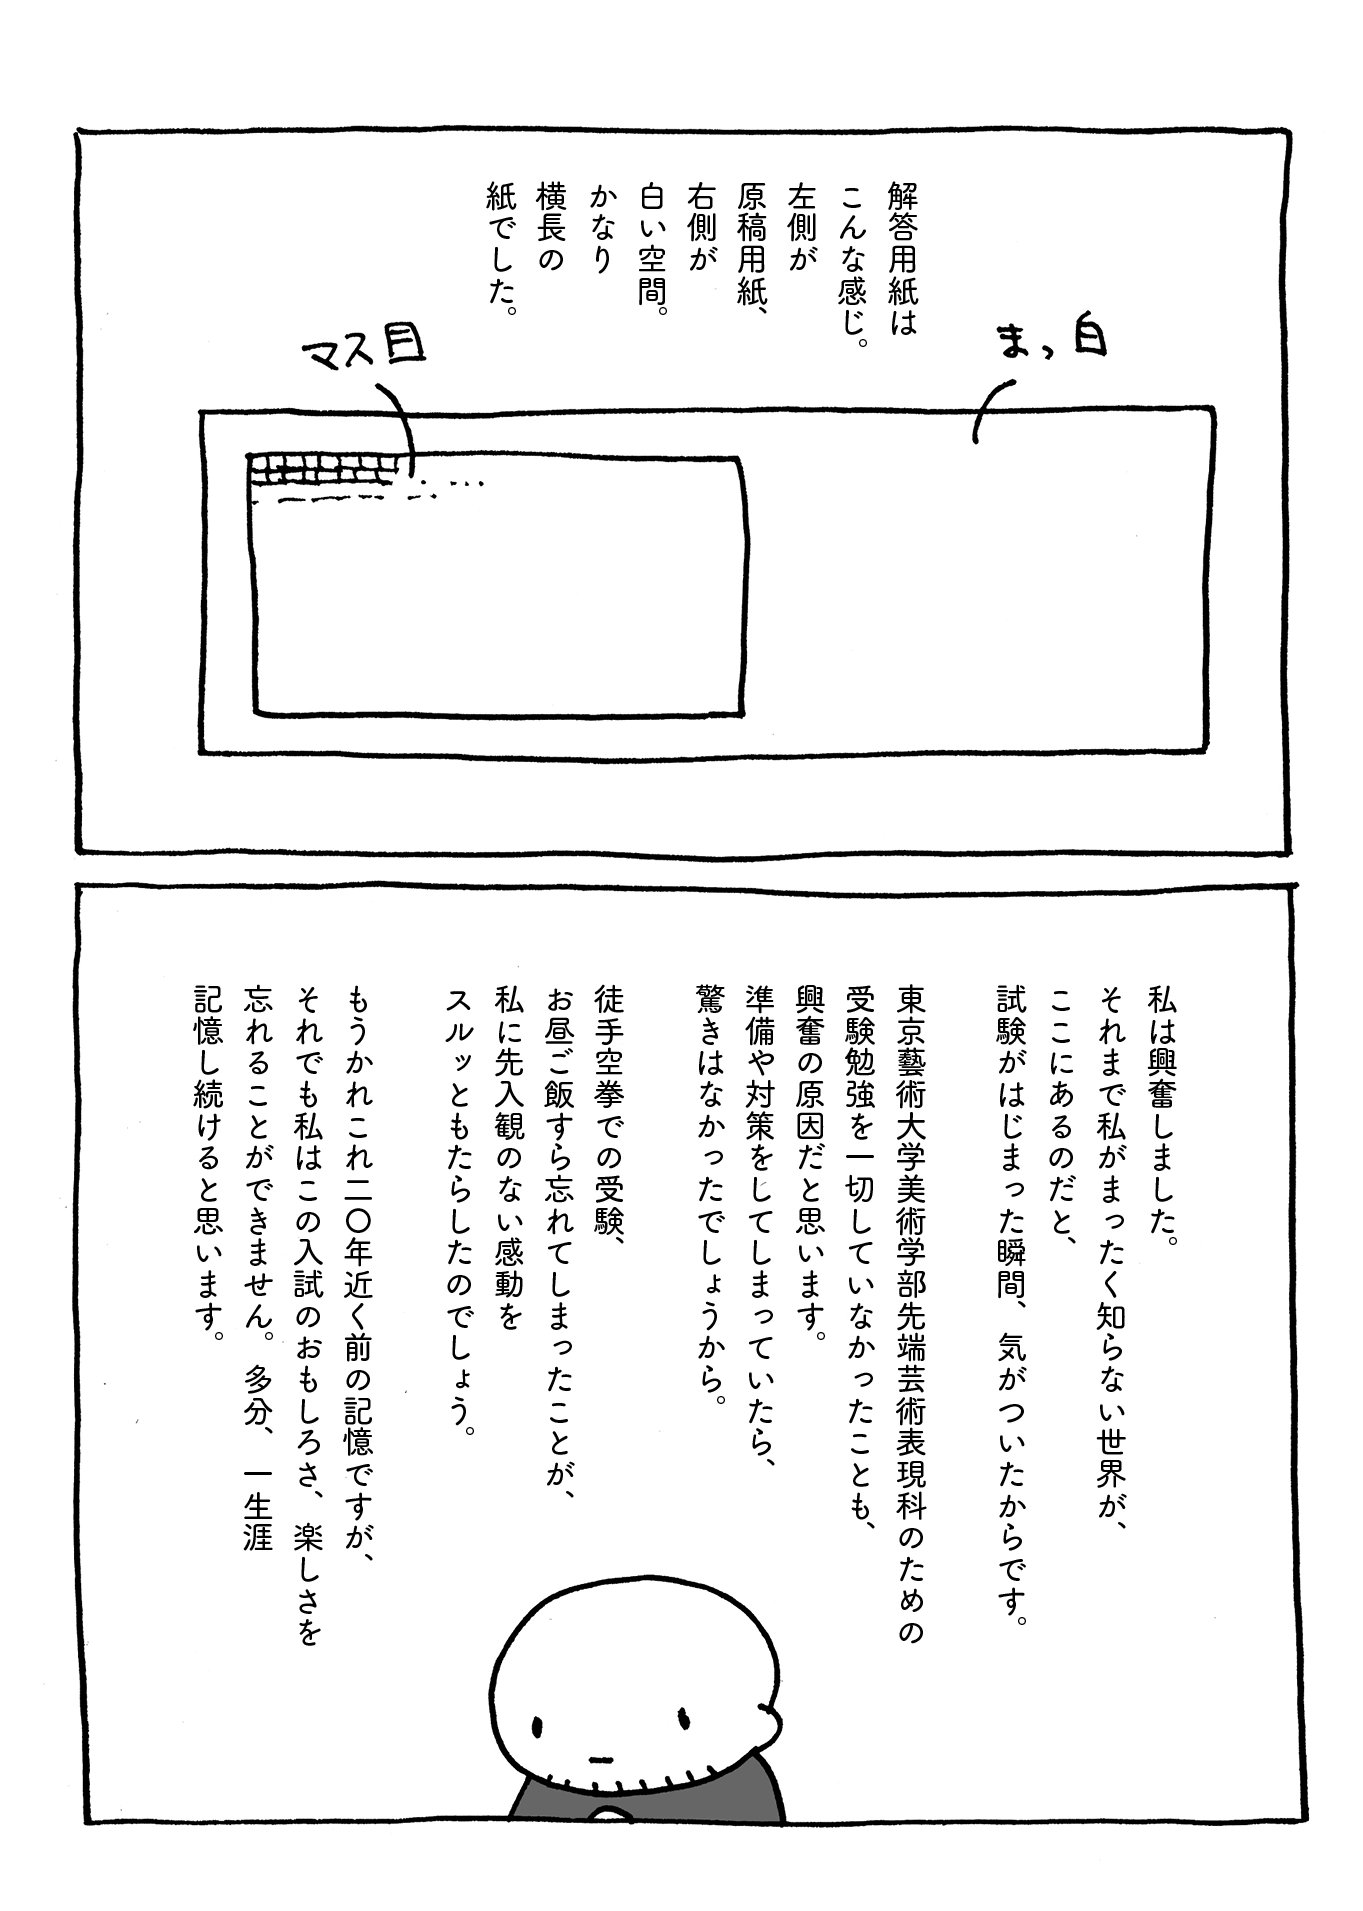 解答用紙は
こんな感じ。
左側が
原稿用紙、
右側が
白い空間。
かなり
横長の
紙でした。
まっ白
マス目
私は興奮しました。
それまで私がまったく知らない世界が、
ここにあるのだと、
試験がはじまった瞬間、気がついたからです。
東京藝術大学美術学部先端芸術表現科のための
受験勉強を一切していなかったことも、
興奮の原因だと思います。
準備や対策をしてしまっていたら、
驚きはなかったでしょうから。
徒手空拳での受験、
お昼ご飯すら忘れてしまったことが、
私に先入観のない感動を
スルッともたらしたのでしょう。
もうかれこれ二〇年近く前の記憶ですが、
それでも私はこの入試のおもしろさ、楽しさを
忘れることができません。多分、一生涯
記憶し続けると思います。